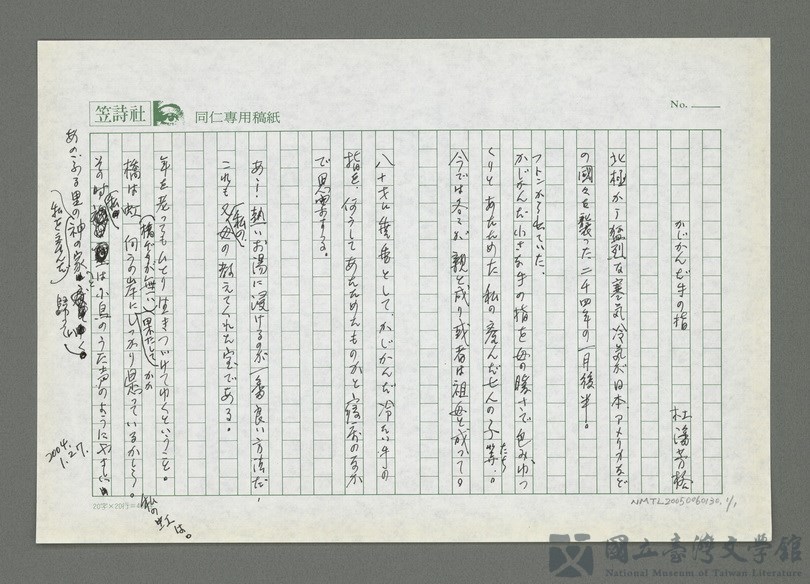 No.
笠詩社
同仁専用稿紙
かじかんだ手の指
杜潘芳格
北極から猛烈な寒気 冷気が日本 アメリカなど
の國々を襲った二千四年の一月後半。
フトンから出ていた、
かじかんだ小さな手の指を母の勝で包みゆつ
くりとあたためた 私の産んだ七人の子等。
たち
今では各々が親と成り或者は祖母と成って。
八十才に
として、かじかんだ冷たい手の
指を、何うしてあたためたものかと寝床のなか
で思案する。
あゝ！熱いお湯に浸けるのが一番良い方法だ！
これも
私の
父母の教えてくれた宝である。
年を老ってもひとり生きつづけてゆくということ。
橋げたが無い
果たして
橋は虹 何うの岸にしっかり
ているかしら。
私の虹は。
その時
は小鳥のうた声のようにやさしい
あのふる里の神の家
私を産んだ
歸
2004.
1.27.
20字×20行=
NMTL20050060130, 1/1
國立臺灣文學館
National Museum of Taiwan Literature